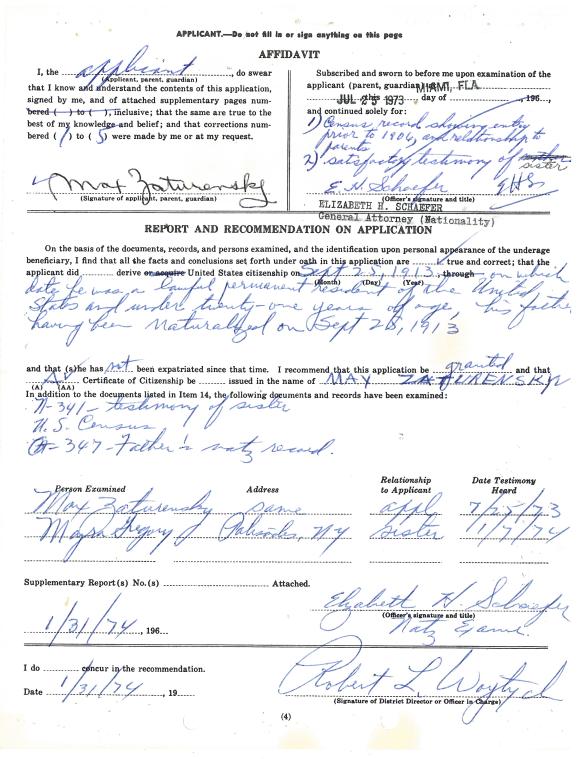 APPLICANT.—Do not fill in or sign anything on this page
AFFIDAVIT
I, the applicant, do swear
(Applicant, parent, guardian)
that I know and understand the contents of this application,
signed by me, and of attached supplementary pages num-
bered ( ) to ( ), inclusive; that the same are true to the
best of my knowledge and belief; and that corrections num-
bered (1) to (5) were made by me or at my request.
Max Zaturensky
(Signature of applicant, parent, guardian)
Subscribed and sworn to before me upon examination of the
applicant (parent, guardian) MIAMI, FLA.
JUL 25 1973 this day of , 196
and continued solely for:
1) Census record showing entry
prior to 1906, and relationship to
parents
2) satisfactory testimony of mother
sister
E. H. Schaefer EHS
(Officer's signature and title)
ELIZABETH H. SCHAEFER
General Attorney (Nationality)
REPORT AND RECOMMENDATION ON APPLICATION
On the basis of the documents, records, and persons examined, and the identification upon personal appearance of the underage
beneficiary, I find that all the facts and conclusions set forth under oath in this application are true and correct; that the
applicant did derive or acquire United States citizenship on Sept 25, 1913, through on which
(Month) (Day) (Year)
date he was a lawful permanent resident of the United
States and under twenty-one years of age, his father
having been naturalized on Sept 25, 1913
and that (s)he has not been expatriated since that time. I recommend that this application be granted and that
A Certificate of Citizenship be issued in the name of MAX ZATURENSKY
(A) (AA)
In addition to the documents listed in Item 14, the following documents and records have been examined:
N-341 - testimony of sister
U.S. Census
347 - Father's natz record.
Person Examined Address Relationship to Applicant Date Testimony Heard
Max Zaturensky same appl 7/25/73
Gregory Palisades, NY sister 1/7/74
Supplementary Report(s) No.(s) Attached.
Elizabeth H Schaefer
(Officer's signature and title)
Natz Exam.
1/31/74, 196
I do concur in the recommendation.
Date 1/31/74, 19
Robert L. Woytych
(Signature of District Director or Officer in Charge)
(4)